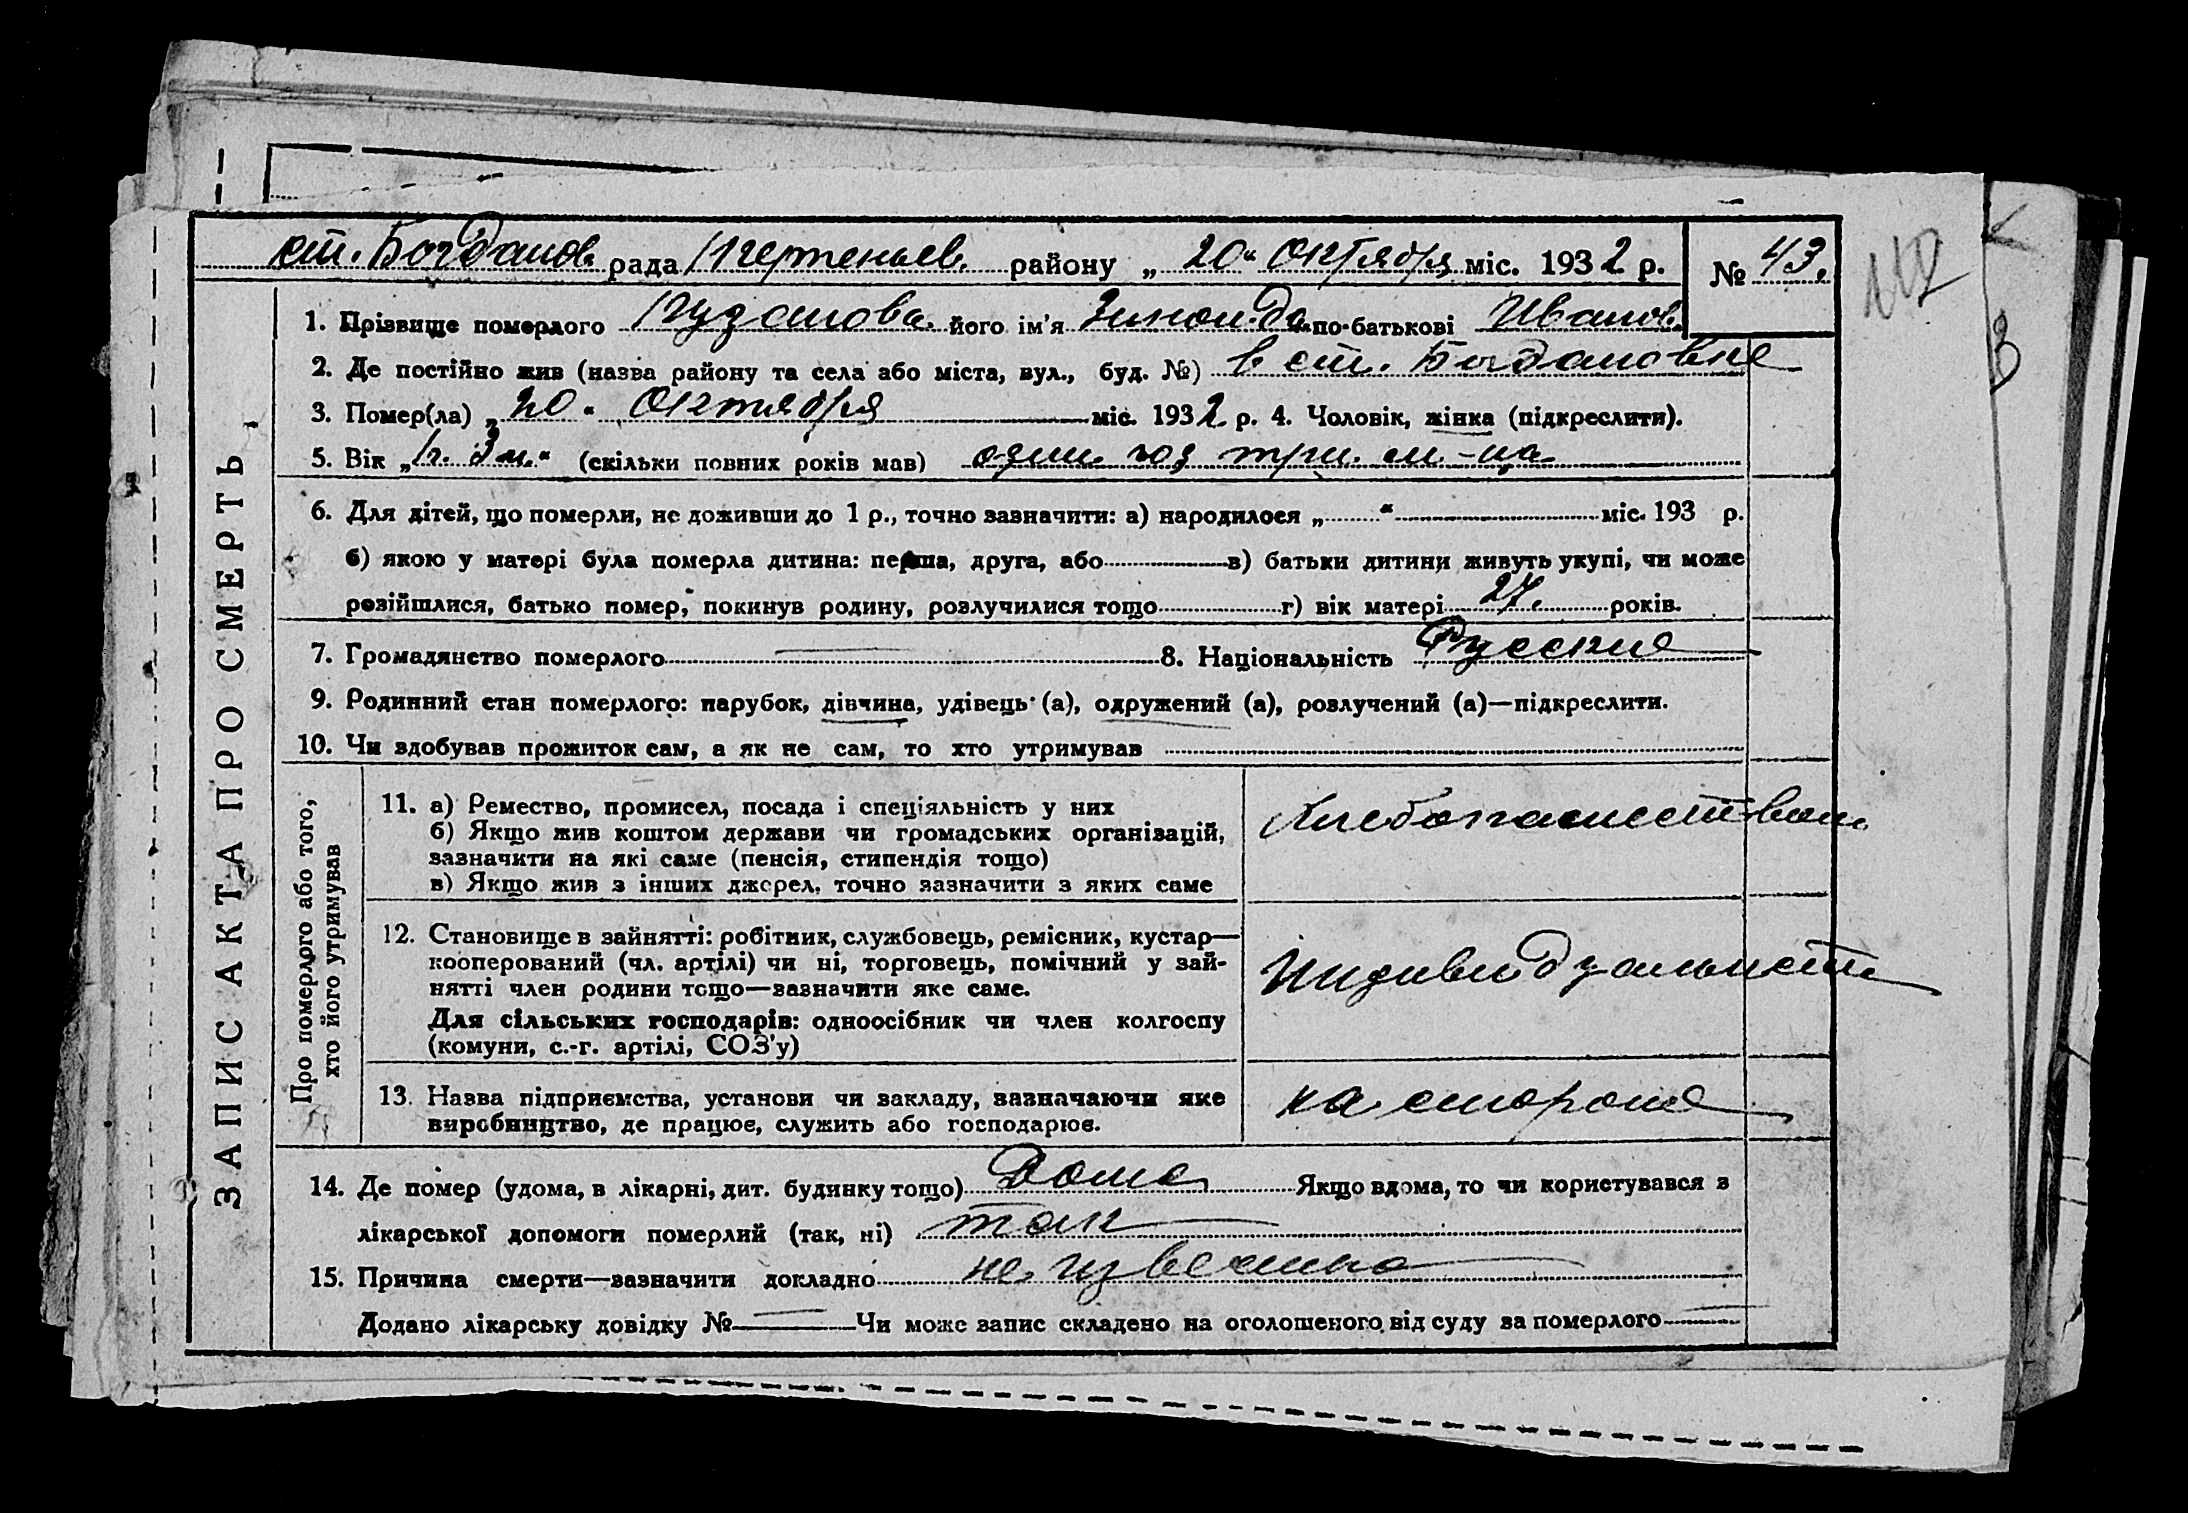 ст. Богданов. рада Чертеньев. району „ 20 " Октября міс. 1932 р.
№ 43.
117
ЗАПИС АКТА ПРО СМЕРТЬ
1. Прізвище померлого його ім'я Зиноида по-батькові Иванов.
2. Де постійно жив (назва району та села або міста, вул., буд. №) в ст. Богдановке
3. Помер(ла) „ 20 " Октября міс. 1932 р. 4. Чоловік, жінка (підкреслити).
5. Вік „1г. 3 м." (скільки повних років мав) один год три м-ца
6. Для дітей, що померли, не доживши до 1 р., точно зазначити: а) народилося „ " міс. 193 р.
б) якою у матері була померла дитина: перша, друга, або в) батьки дитини живуть укупі, чи може
розійшлися, батько помер, покинув родину, розлучилися тощо г) вік матері 27. років.
7. Громадянство померлого 8. Національність Русские
9. Родинний стан померлого: парубок, дівчина, удівець (а), одружений (а), розлучений (а)—підкреслити.
10. Чи здобував прожиток сам, а як не сам, то хто утримував
Про померлого або того,
хто його утримував
11. а) Ремество, промисел, посада і спеціяльність у них
б) Якщо жив коштом держави чи громадських організацій,
зазначити на які саме (пенсія, стипендія тощо)
в) Якщо жив з інших джерел, точно зазначити з яких саме
Хлебопашеством
12. Становище в зайнятті: робітник, службовець, ремісник, кустар—
кооперований (чл. артілі) чи ні, торговець, помічний у зай-
нятті член родини тощо—зазначити яке саме.
Для сільських господарів: одноосібник чи член колгоспу
(комуни, с.-г. артілі, СОЗ'у)
Индивидуалист
13. Назва підприємства, установи чи закладу, зазначаючи яке
виробництво, де працює, служить або господарює.
на стороне
14. Де помер (удома, в лікарні, дит. будинку тощо) Дома Якщо вдома, то чи користувався з
лікарської допомоги померлий (так, ні) так
15. Причина смерти—зазначити докладно не известно
Додано лікарську довідку № Чи може запис складено на оголошеного від суду за померлого